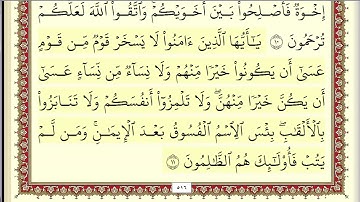 إِخْوَةٌ فَأَصْلِحُوا۟ بَيْنَ أَخَوَيْكُمْ وَٱتَّقُوا۟ ٱللَّهَ لَعَلَّكُمْ
تُرْحَمُونَ ١٠ يَـٰٓأَيُّهَا ٱلَّذِينَ ءَامَنُوا۟ لَا يَسْخَرْ قَوْمٌ مِّن قَوْمٍ
عَسَىٰٓ أَن يَكُونُوا۟ خَيْرًا مِّنْهُمْ وَلَا نِسَآءٌ مِّن نِّسَآءٍ عَسَىٰٓ
أَن يَكُنَّ خَيْرًا مِّنْهُنَّ ۖ وَلَا تَلْمِزُوٓا۟ أَنفُسَكُمْ وَلَا تَنَابَزُوا۟
بِٱلْأَلْقَـٰبِ ۖ بِئْسَ ٱلِٱسْمُ ٱلْفُسُوقُ بَعْدَ ٱلْإِيمَـٰنِ ۚ وَمَن لَّمْ
يَتُبْ فَأُو۟لَـٰٓئِكَ هُمُ ٱلظَّـٰلِمُونَ ١١
٥١٦